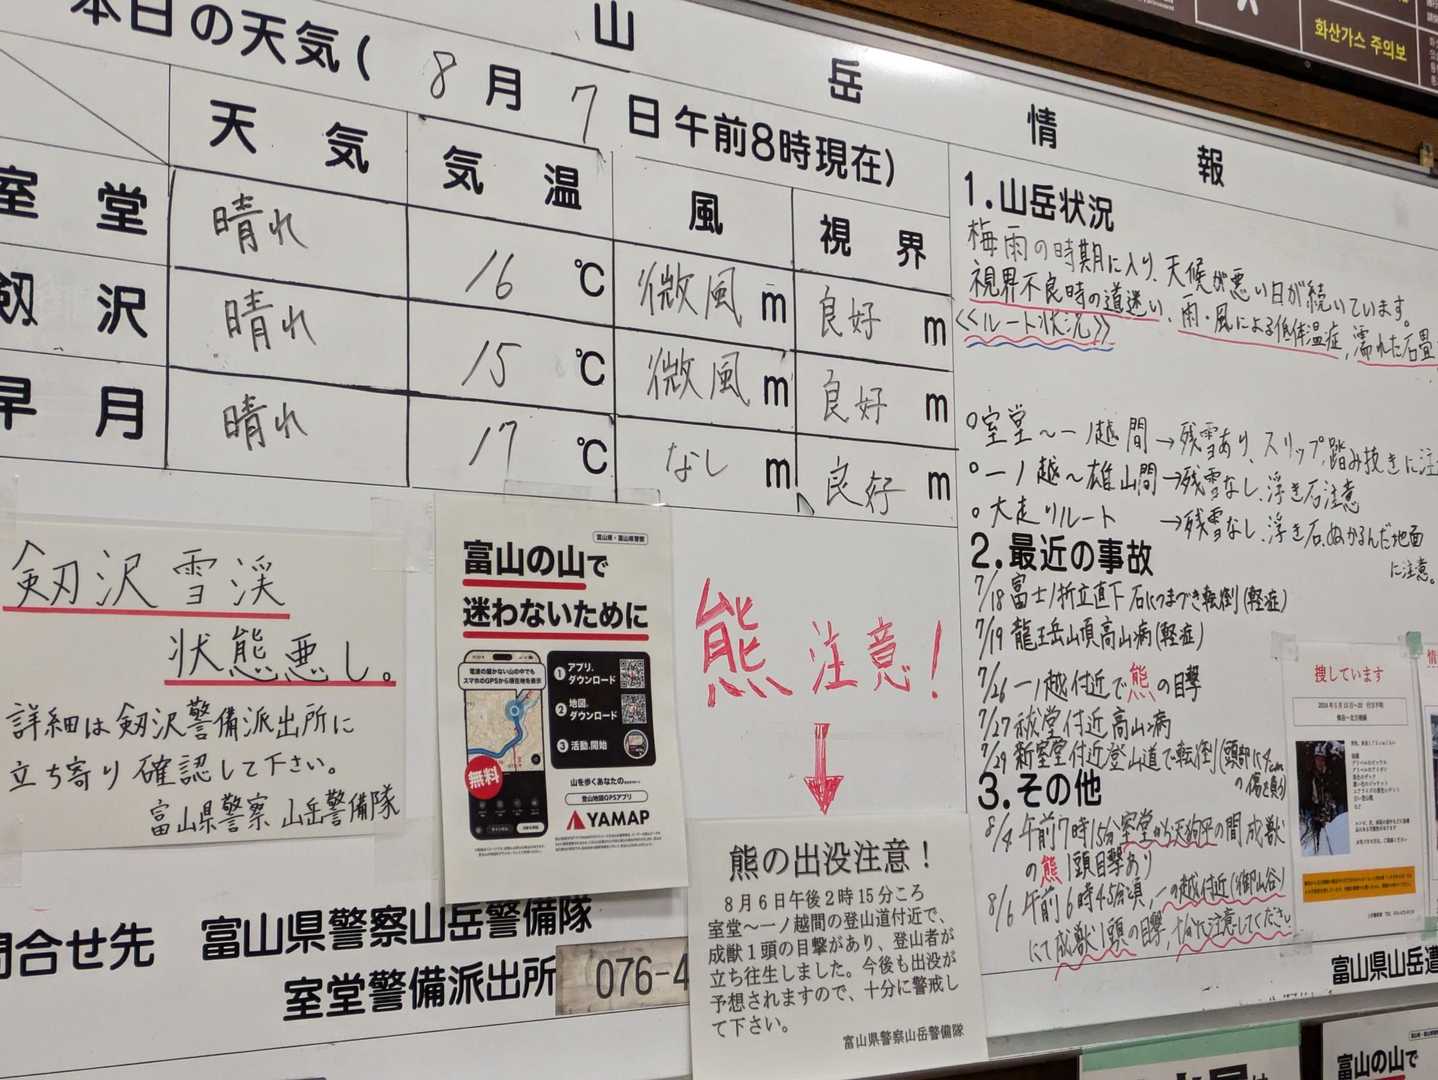 山岳情報
本日の天気(8月7日午前8時現在)
天気 気温 風 視界
室堂 晴れ 16℃ 微風 m 良好 m
剱沢 晴れ 15℃ 微風 m 良好 m
早月 晴れ 17℃ なし m 良好 m
剱沢雪渓
状態悪し。
詳細は剱沢警備派出所に
立ち寄り確認して下さい。
富山県警察 山岳警備隊
富山県・富山県警察
富山の山で
迷わないために
電波の届かない山の中でも
スマホのGPSから現在地を表示
1 アプリ.ダウンロード
2 地図.ダウンロード
3 活動.開始
無料
山を歩くあなたの
登山地図GPSアプリ
YAMAP
熊 注意!
↓
熊の出没注意!
8月6日午後2時15分ころ
室堂~一ノ越間の登山道付近で、
成獣1頭の目撃があり、登山者が
立ち往生しました。今後も出没が
予想されますので、十分に警戒し
て下さい。
富山県警察山岳警備隊
問合せ先 富山県警察山岳警備隊
室堂警備派出所 076-4
1.山岳状況
梅雨の時期に入り、天候が悪い日が続いています。
視界不良時の道迷い、雨・風による低体温症、濡れた石畳
<<ルート状況>>
○室堂~一ノ越間→残雪あり、スリップ、踏み抜きに注
○一ノ越~雄山間→残雪なし、浮き石注意
○大走りルート →残雪なし、浮き石、ぬかるんだ地面
に注意。
2.最近の事故
7/18 富士ノ折立直下 石につまづき転倒(軽症)
7/19 龍王岳山頂 高山病(軽症)
7/26 一ノ越付近で熊の目撃
7/27 祓堂付近 高山病
7/29 新室堂付近登山道で転倒(頭部に4cm
の傷を負う)
3.その他
8/4 午前7時15分 室堂から天狗平の間 成獣
の熊1頭目撃あり
8/6 午前6時45分頃、一の越付近(御山谷)
にて成獣1頭の目撃、十分に注意してください
捜しています
富山県山岳遭
富山の山で
화산가스 주의보